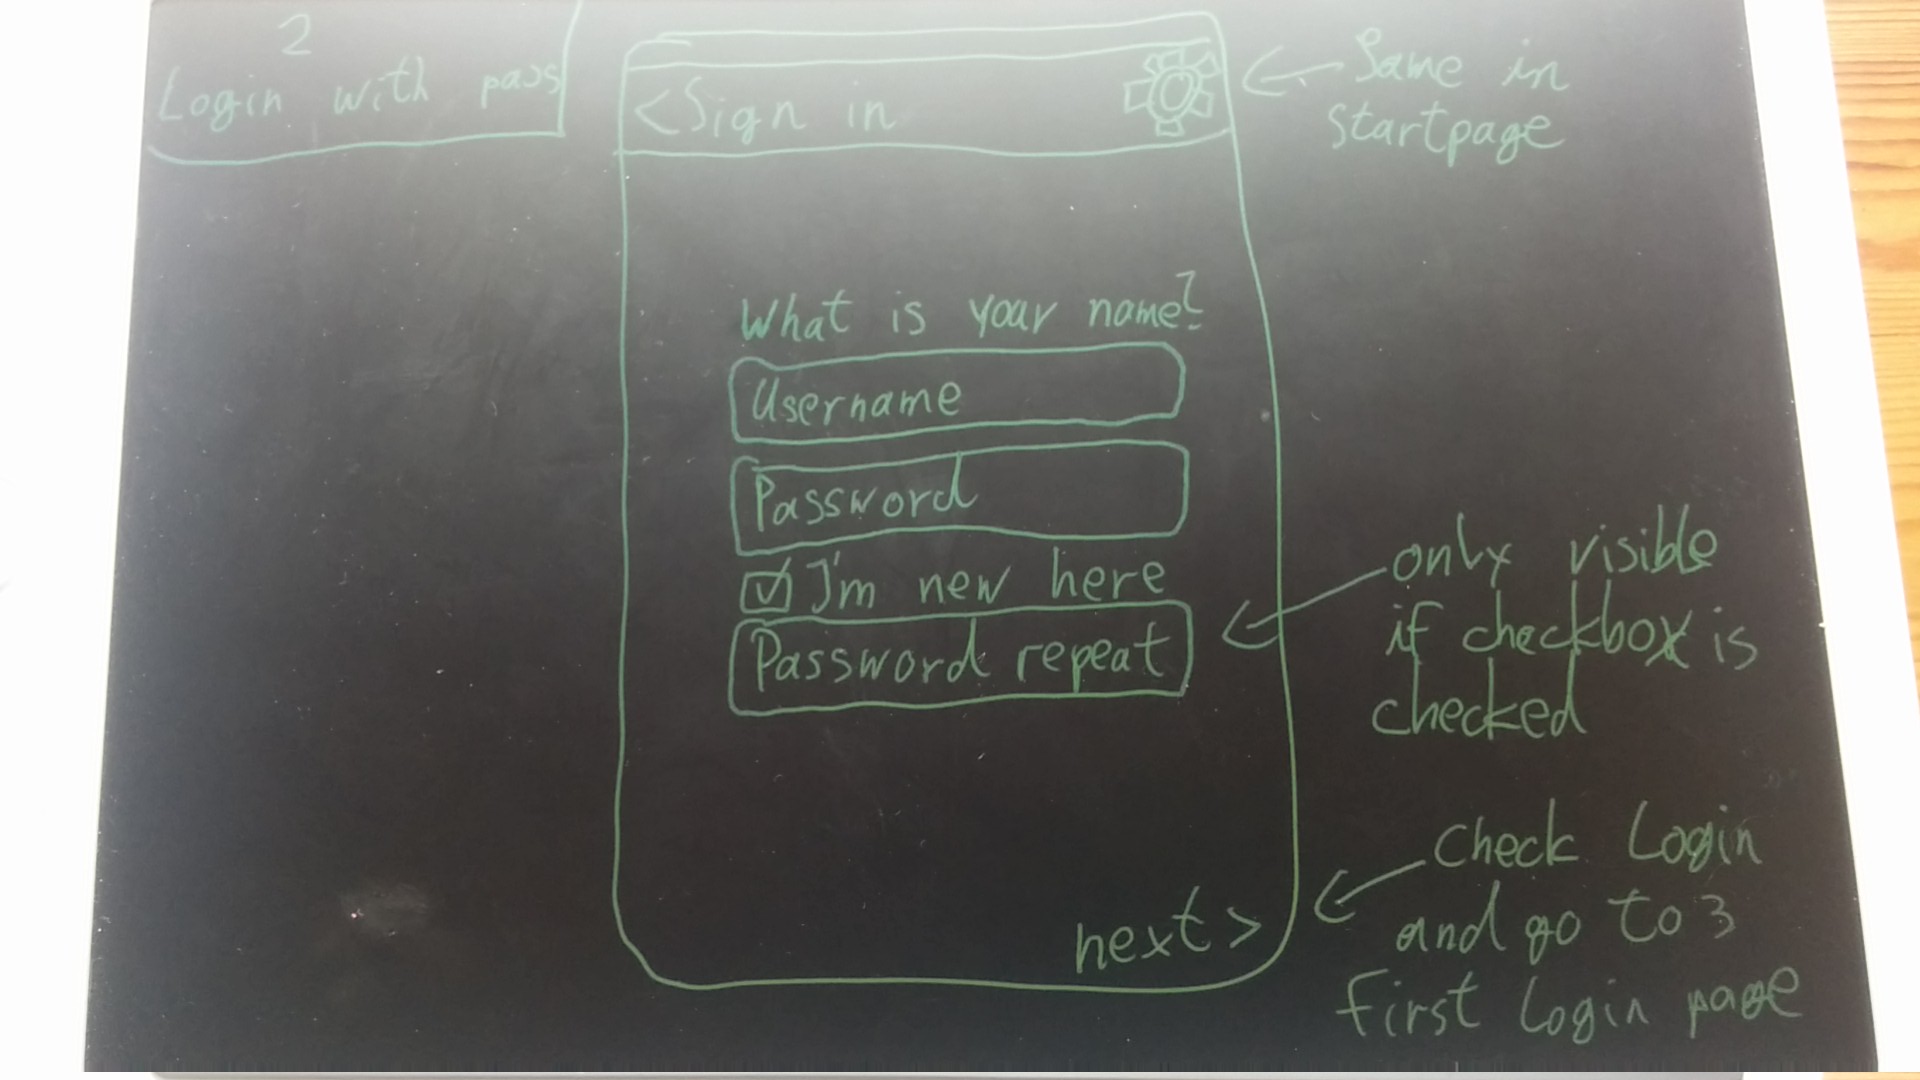 2
Login with pass
<Sign in
Same in
startpage
What is your name?
Username
Password
I'm new here
Password repeat
only visible
if checkbox is
checked
next >
Check Login
and go to 3
First Login page